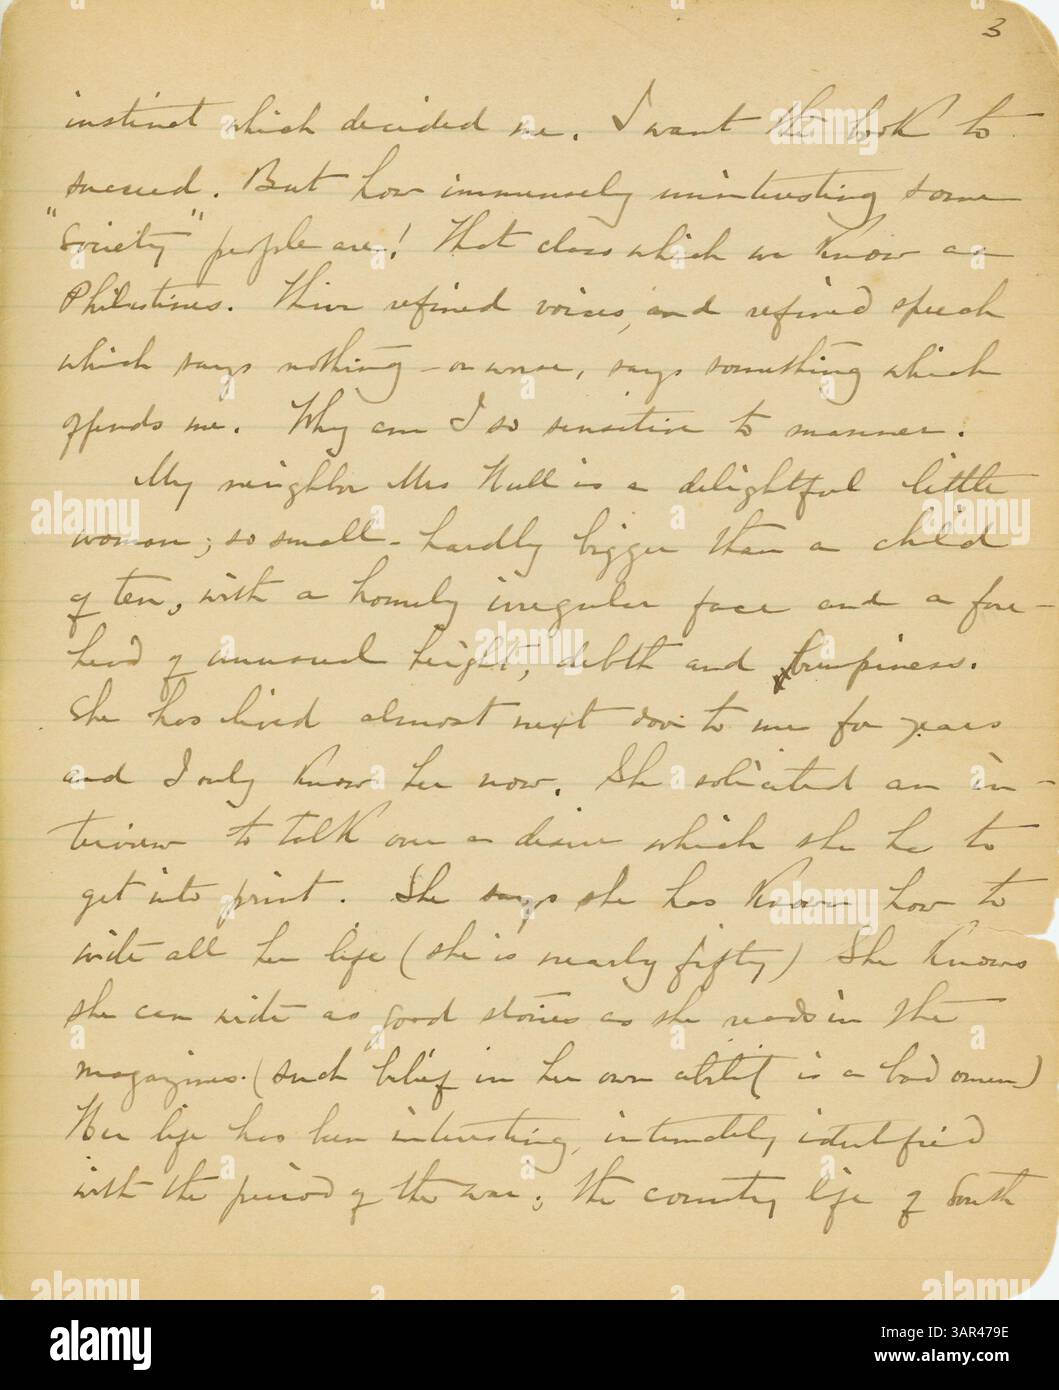 3
instinct which decided me. I want the book to
succeed. But how immensely uninteresting some
"Society" people are! That class which we know as
Philistines. Their refined voices, and refined speech
which says nothing - or worse, says something which
offends me. Why am I so sensitive to manner.
My neighbor Mrs Hull is a delightful little
woman; so small - hardly bigger than a child
of ten, with a homely irregular face and a fore-
head of unusual height, debth and bumpiness.
She has lived almost next door to me for years
and I only know her now. She solicited an in-
terview to talk over a desire which she has to
get into print. She says she has known how to
write all her life (she is nearly fifty) She knows
she can write as good stories as she reads in the
magazines. (such belief in her own ability is a bad omen)
Her life has been interesting, intimately identified
with the period of the war; the country life of South
alamy
Image ID: 3AR479E
www.alamy.com